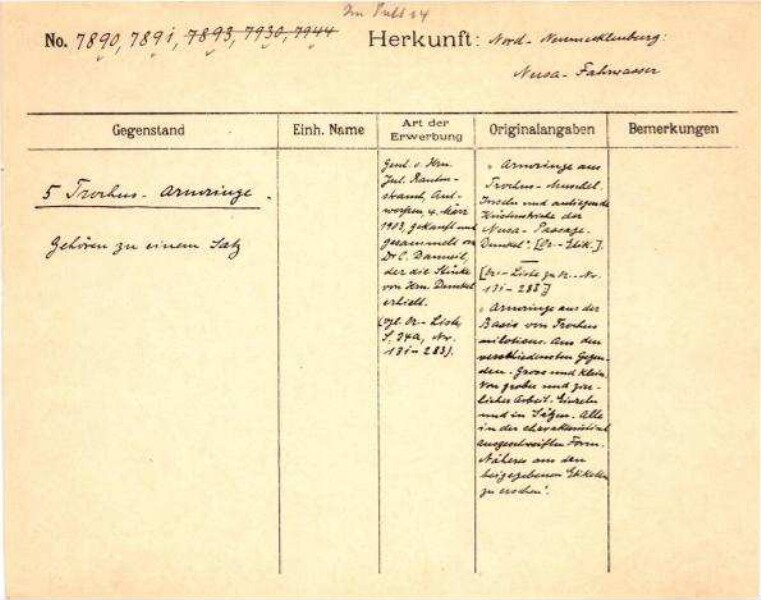 Im Pult 24
No. 7890, 7891, 7893, 7930, 7944 Herkunft: Nord-Neumecklenburg:
Nusa-Fahrwasser
Gegenstand
Einh. Name
Art der
Erwerbung
Originalangaben
Bemerkungen
5 Trochus-Armringe.
Gehören zu einem Satz
Gesch. v. Hrn.
Jul. Rauten-
strauch, Ant-
werpen, 4. März
1903, gekauft und
gesammelt von
Dr C. Danneil,
der die Stücke
von Hrn. Dunkel
erhielt.
(vgl. Or-Liste,
S. 34a, Nr.
131-283).
„Armringe aus
Trochus-Muschel.
Inseln und anliegende
Küstenstriche der
Nusa-Passage.
Dunkel". [Or-Etik.].
[Or-Liste zu Or-Nr.
131-283]
„Armringe aus der
Basis von Trochus
niloticus. Aus den
verschiedensten Gegen-
den. Gross und klein.
Von grober und zier-
licher Arbeit. Einzeln
und in Sätzen. Alle
in der charakteristisch
ausgeschweiften Form.
Näheres aus den
beigegebenen Etiketten
zu ersehen".